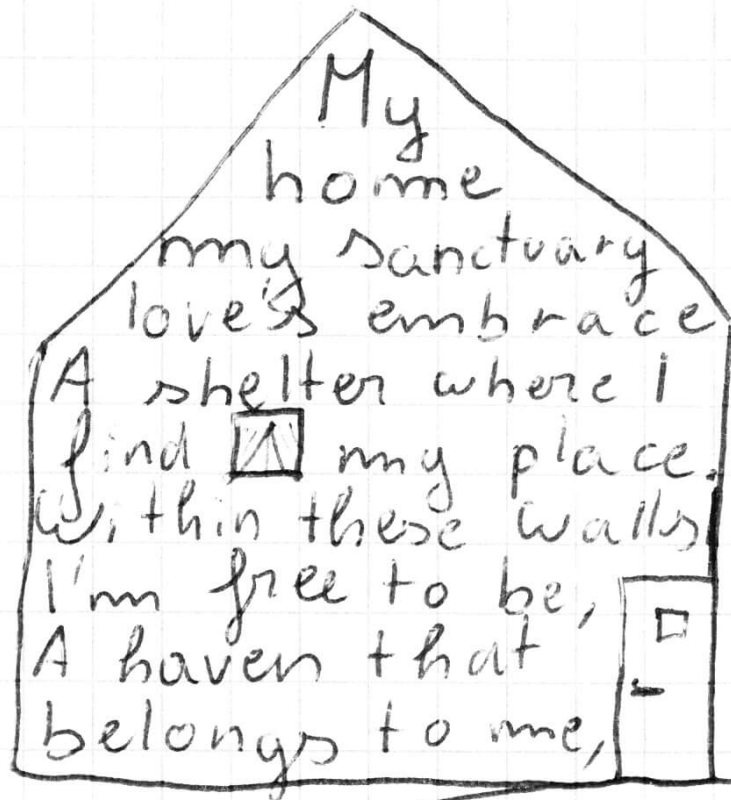 My
home
my sanctuary
love's embrace
A shelter where I
find my place.
Within these walls
I'm free to be,
A haven that
belongs to me,